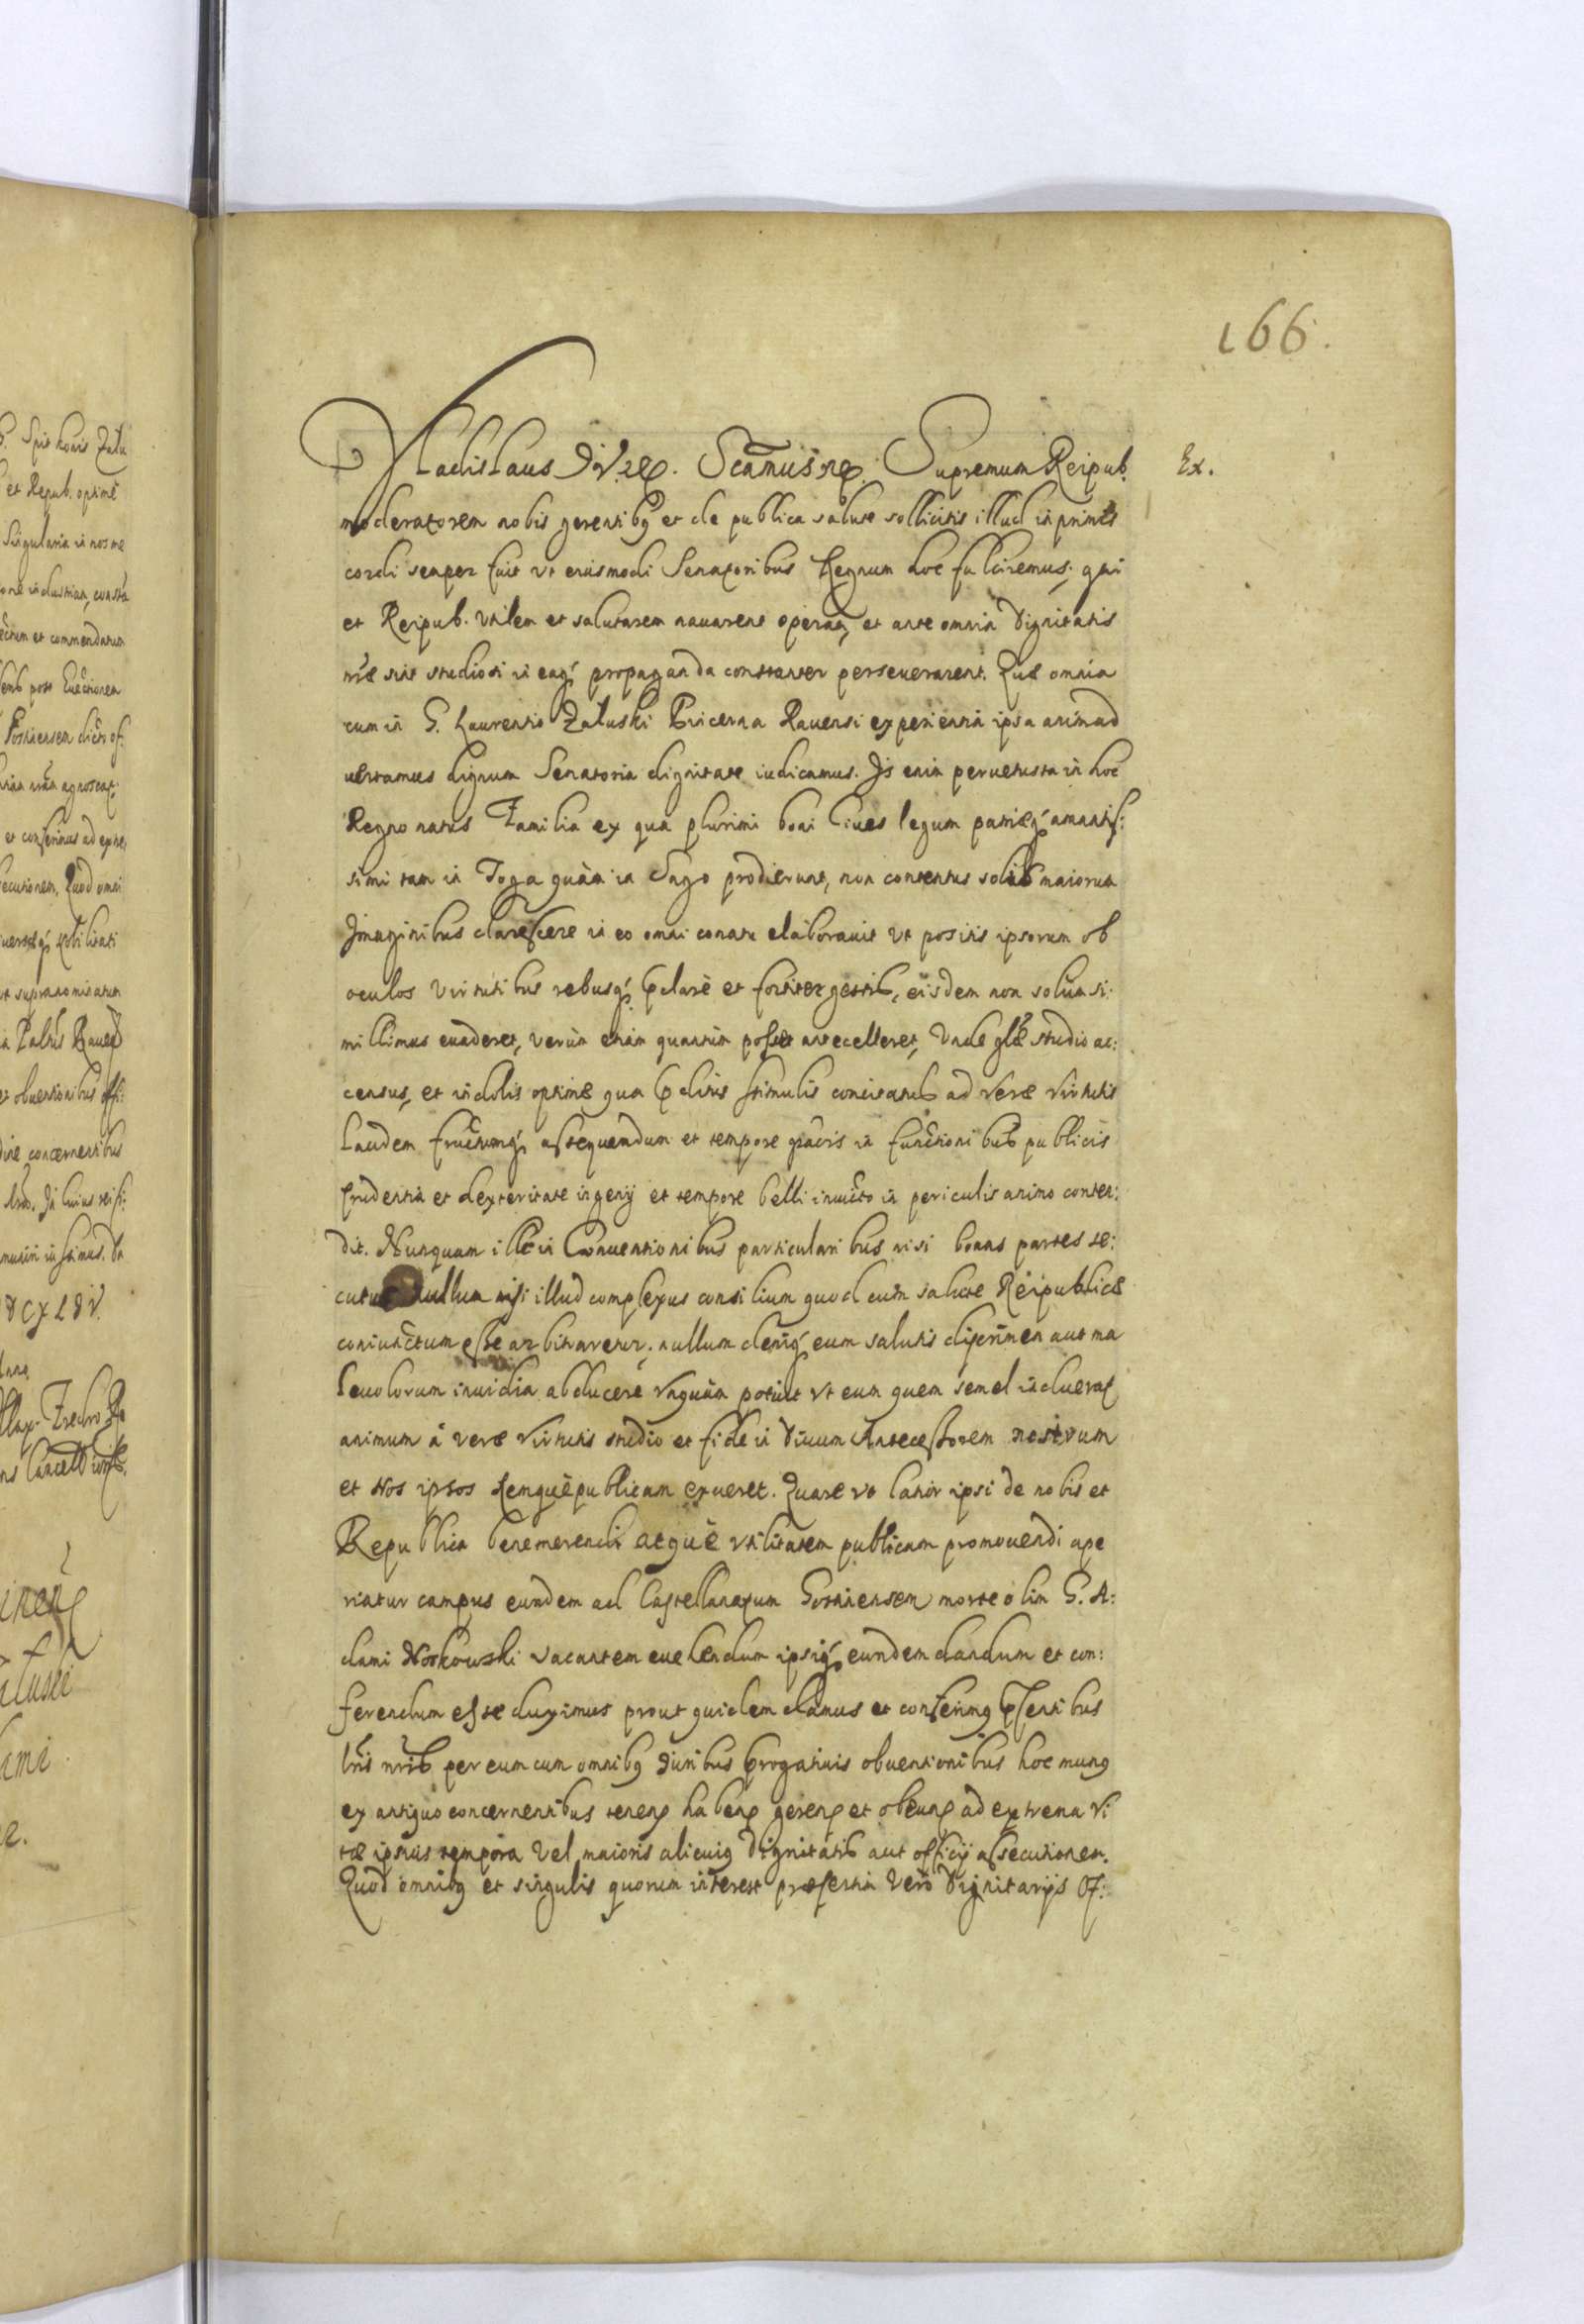 166.
Vladislaus IV. etc. Scamus etc. Supremum Reipub. Ex.
moderatorem nobis gerentibq et de publica salute sollicitis illud inprimis
cordi semper fuit vt eiusmodi Senatoribus Regnum hoc fulciremus; qui
et Reipub. vtilem et salutarem nauarent operam, et ante omnia Dignitatis
nrae sint studiosi in eaq propaganda constanter perseuerarent. Quae omnia
cum in G. Laurentio Załuski Pincerna Rauensi experientia ipsa animad
uertamus dignum Senatoria dignitate iudicamus. Is enim peruetusta in hoc
Regno natus Familia ex qua plurimi boni Ciues legum patriaeq amantis:
simi tam in Toga quàm in Sago prodierunt, non contentus solis maiorum
Imaginibus clarescere in eo omni conatu elaborauit vt positis ipsorum ob
oculos virtutibus rebusq pclarè et fortiter gestis, eisdem non solùm si:
millimus euaderet, verùm etiam quantùm posset antecelleret, Vnde glae studio ac:
census, et indolis optimae qua pditus stimulis concitatus ad verae virtutis
laudem fructumq assequendum et tempore pacis in functionibus publicis
prudentia et dexteritate ingenij et tempore belli inuicto in periculis animo conten:
dit. Nunquam ille in Conuentionibus particularibus nisi bonas partes se:
cutus Nullum nisi illud complexus consilium quod cum salute Reipublicae
coniunctum esse arbitraretur, nullum deniq eum salutis discrimen aut ma
leuolorum inuidia abducere vnquàm potuit vt eum quem semel induerat
animum à verae virtutis studio et fide in Diuum Antecessorem nostrum
et Nos ipsos Remquè publicam exueret. Quare vt latior ipsi de nobis et
Republica benemerendi atquè vtilitatem publicam promouendi ape
riatur campus eundem ad Castellanatum Gostinensem morte olim G. A:
dami Noskowski vacantem euehendum ipsiq eundem dandum et con:
ferendum esse duximus prout quidem damus et conferimq psentibus
lris nris per eum cum omnibq Iuribus progatiuis obuentionibus hoc munq
ex antiquo concernentibus tenen habend gerend et obeund ad extrema vi
tae ipsius tempora vel maioris alicuiq Dignitatis aut officij assecutionem.
Quod omnibq et singulis quorum interest praesertim verò Dignitarijs Of: